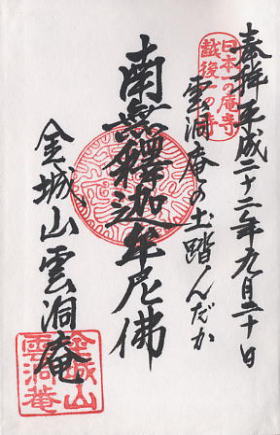 奉拝 平成二十二年九月二十日
日本一の庵寺
越後一の寺
雲洞庵の土踏んだか
南無釋迦牟尼佛
金城山雲洞庵
金城山
雲洞菴